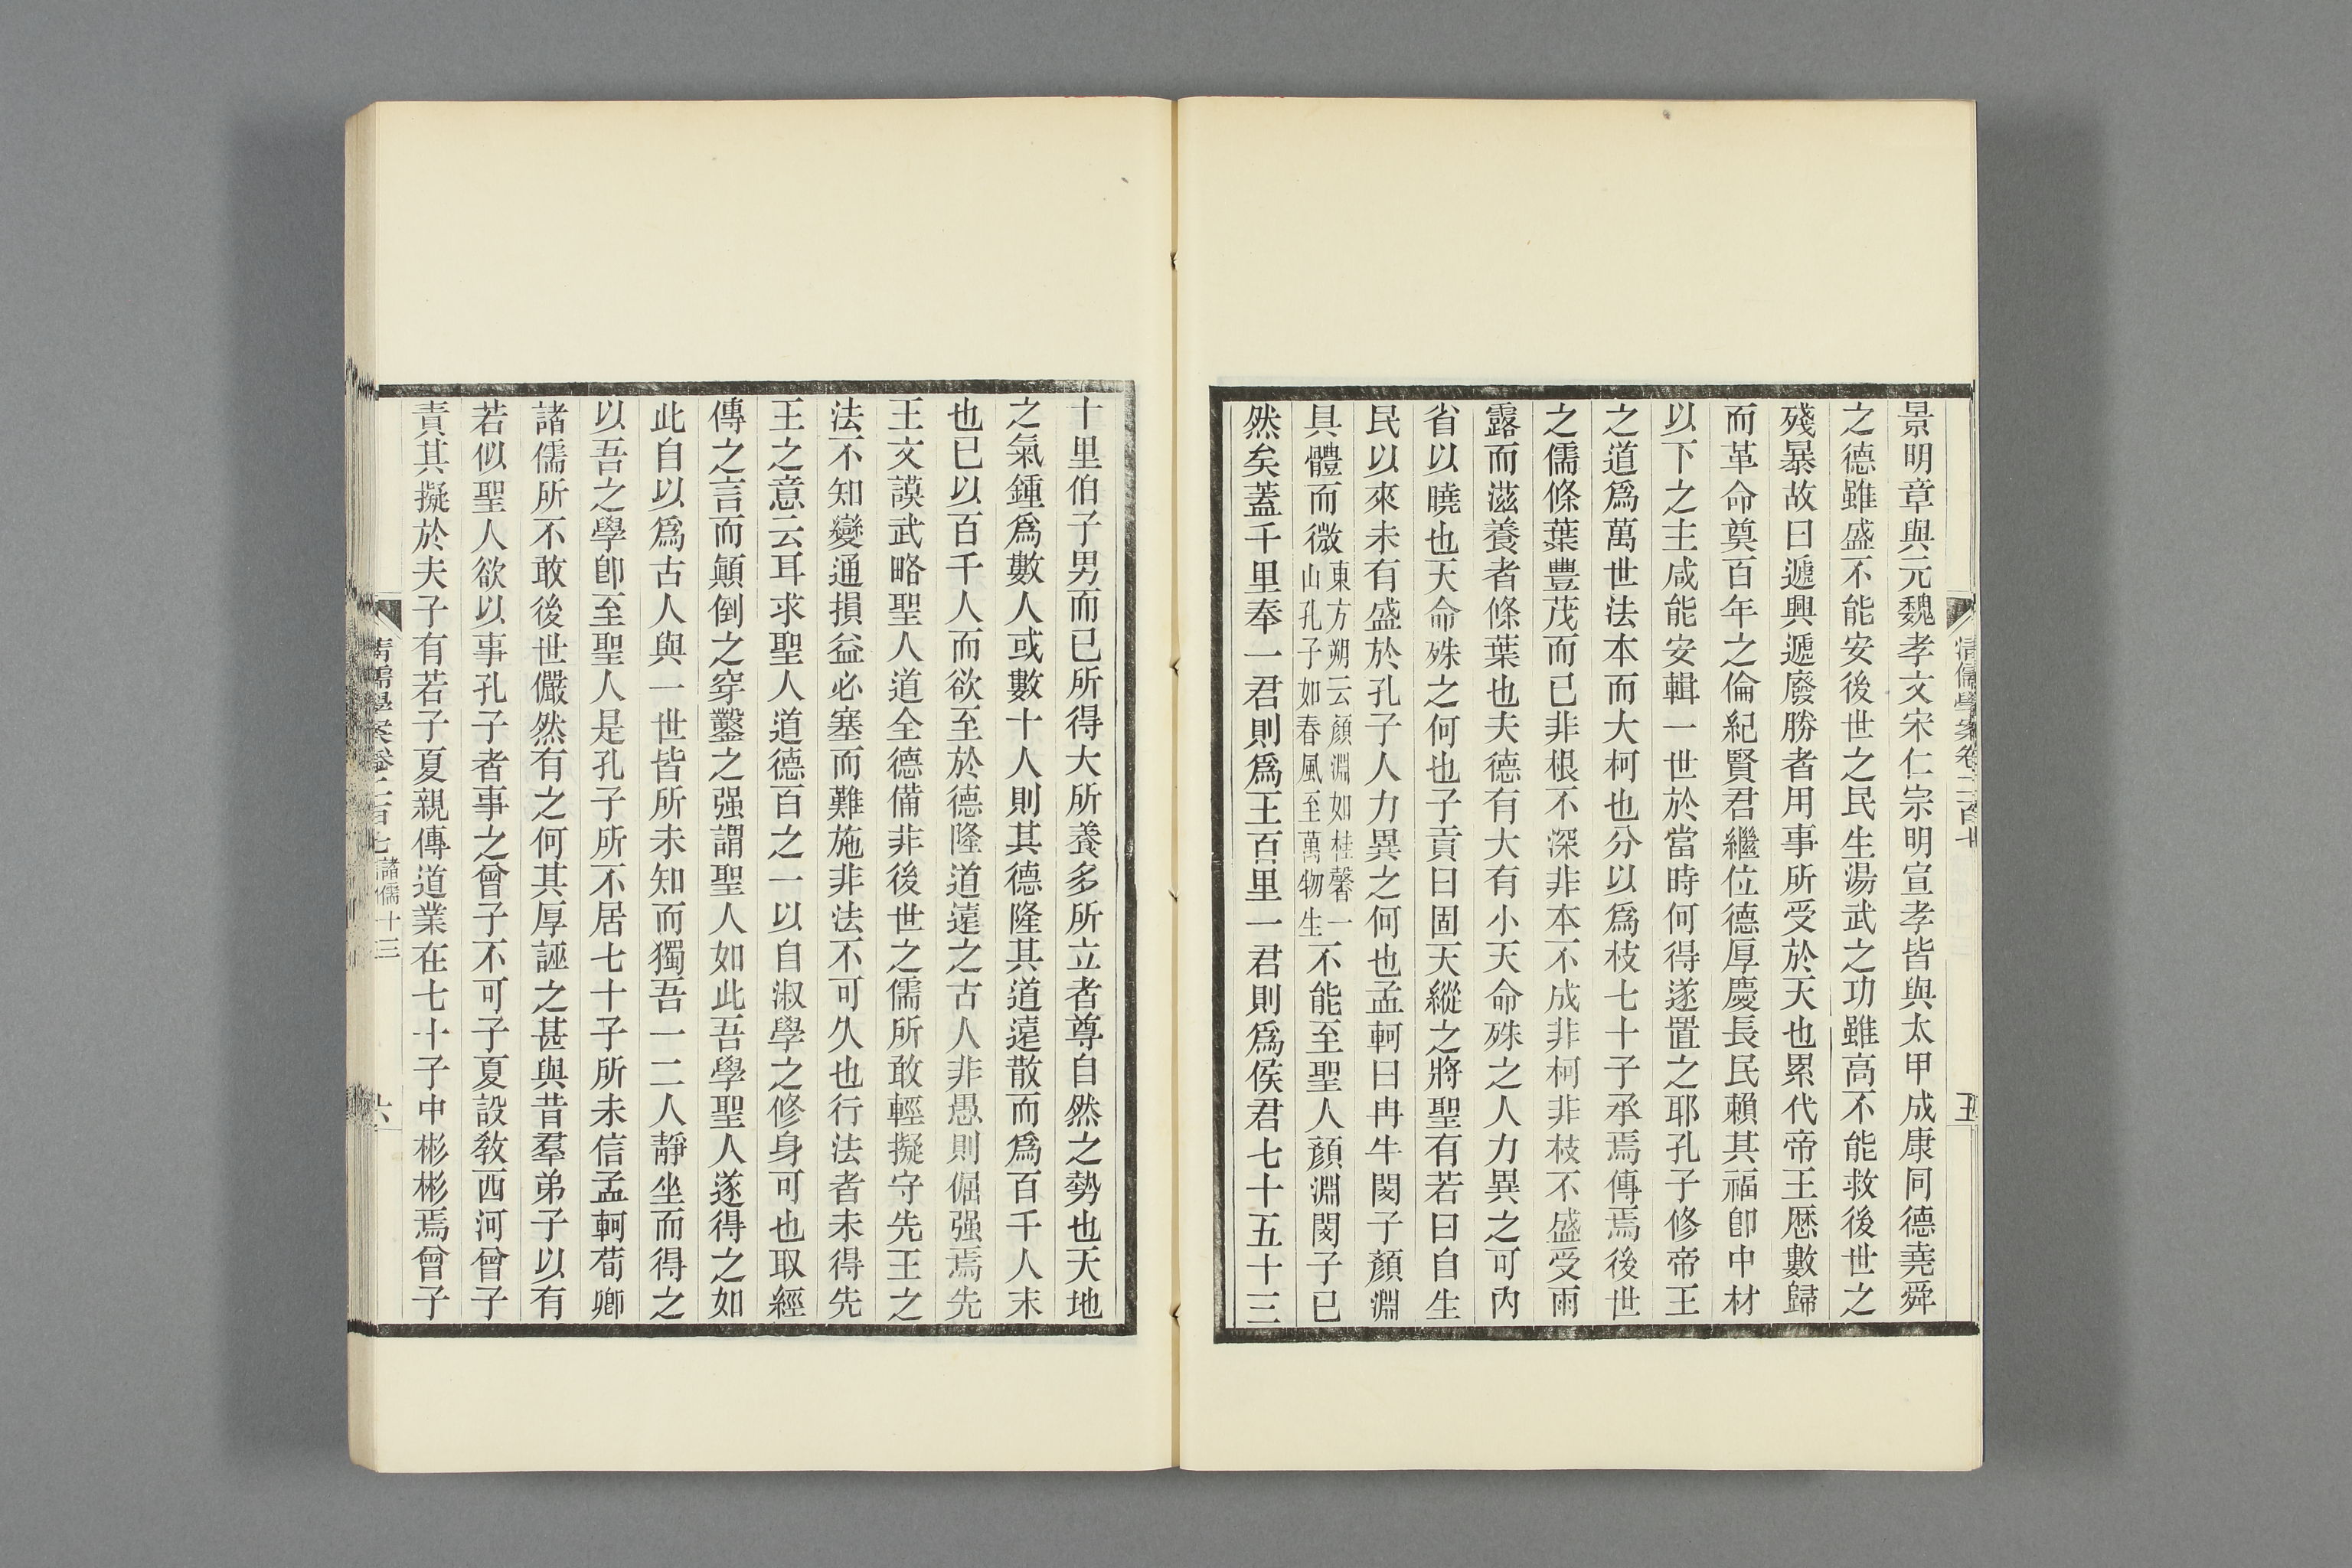 景明章與元魏孝文宋仁宗明宣孝皆與太甲成康同德堯舜
之德雖盛不能安後世之民生湯武之功雖高不能救後世之
殘暴故曰遞興遞廢勝者用事所受於天也累代帝王歷數歸
而革命奠百年之倫紀賢君繼位德厚慶長民賴其福卽中材
以下之主咸能安輯一世於當時何得遂置之耶孔子修帝王
之道爲萬世法本而大柯也分以爲枝七十子承焉傳焉後世
之儒條葉豐茂而已非根不深非本不成非柯非枝不盛受雨
露而滋養者條葉也夫德有大有小天命殊之人力異之可內
省以曉也天命殊之何也子貢曰固天縱之將聖有若曰自生
民以來未有盛於孔子人力異之何也孟軻曰冉牛閔子顏淵
具體而微東方朔云顏淵如桂馨一山孔子如春風至萬物生不能至聖人顏淵閔子已
然矣蓋千里奉一君則爲王百里一君則爲侯君七十五十三
十里伯子男而已所得大所養多所立者尊自然之勢也天地
之氣鍾爲數人或數十人則其德隆其道遠散而爲百千人末
也已以百千人而欲至於德隆道遠之古人非愚則倔强焉先
王文謨武略聖人道全德備非後世之儒所敢輕擬守先王之
法不知變通損益必塞而難施非法不可久也行法者未得先
王之意云耳求聖人道德百之一以自淑學之修身可也取經
傳之言而顚倒之穿鑿之强謂聖人如此吾學聖人遂得之如
此自以爲古人與一世皆所未知而獨吾一二人靜坐而得之
以吾之學卽至聖人是孔子所不居七十子所未信孟軻荀卿
諸儒所不敢後世儼然有之何其厚誣之甚與昔羣弟子以有
若似聖人欲以事孔子者事之曾子不可子夏設敎西河曾子
責其擬於夫子有若子夏親傳道業在七十子中彬彬焉曾子
清儒學案卷二百七 諸儒十三
六